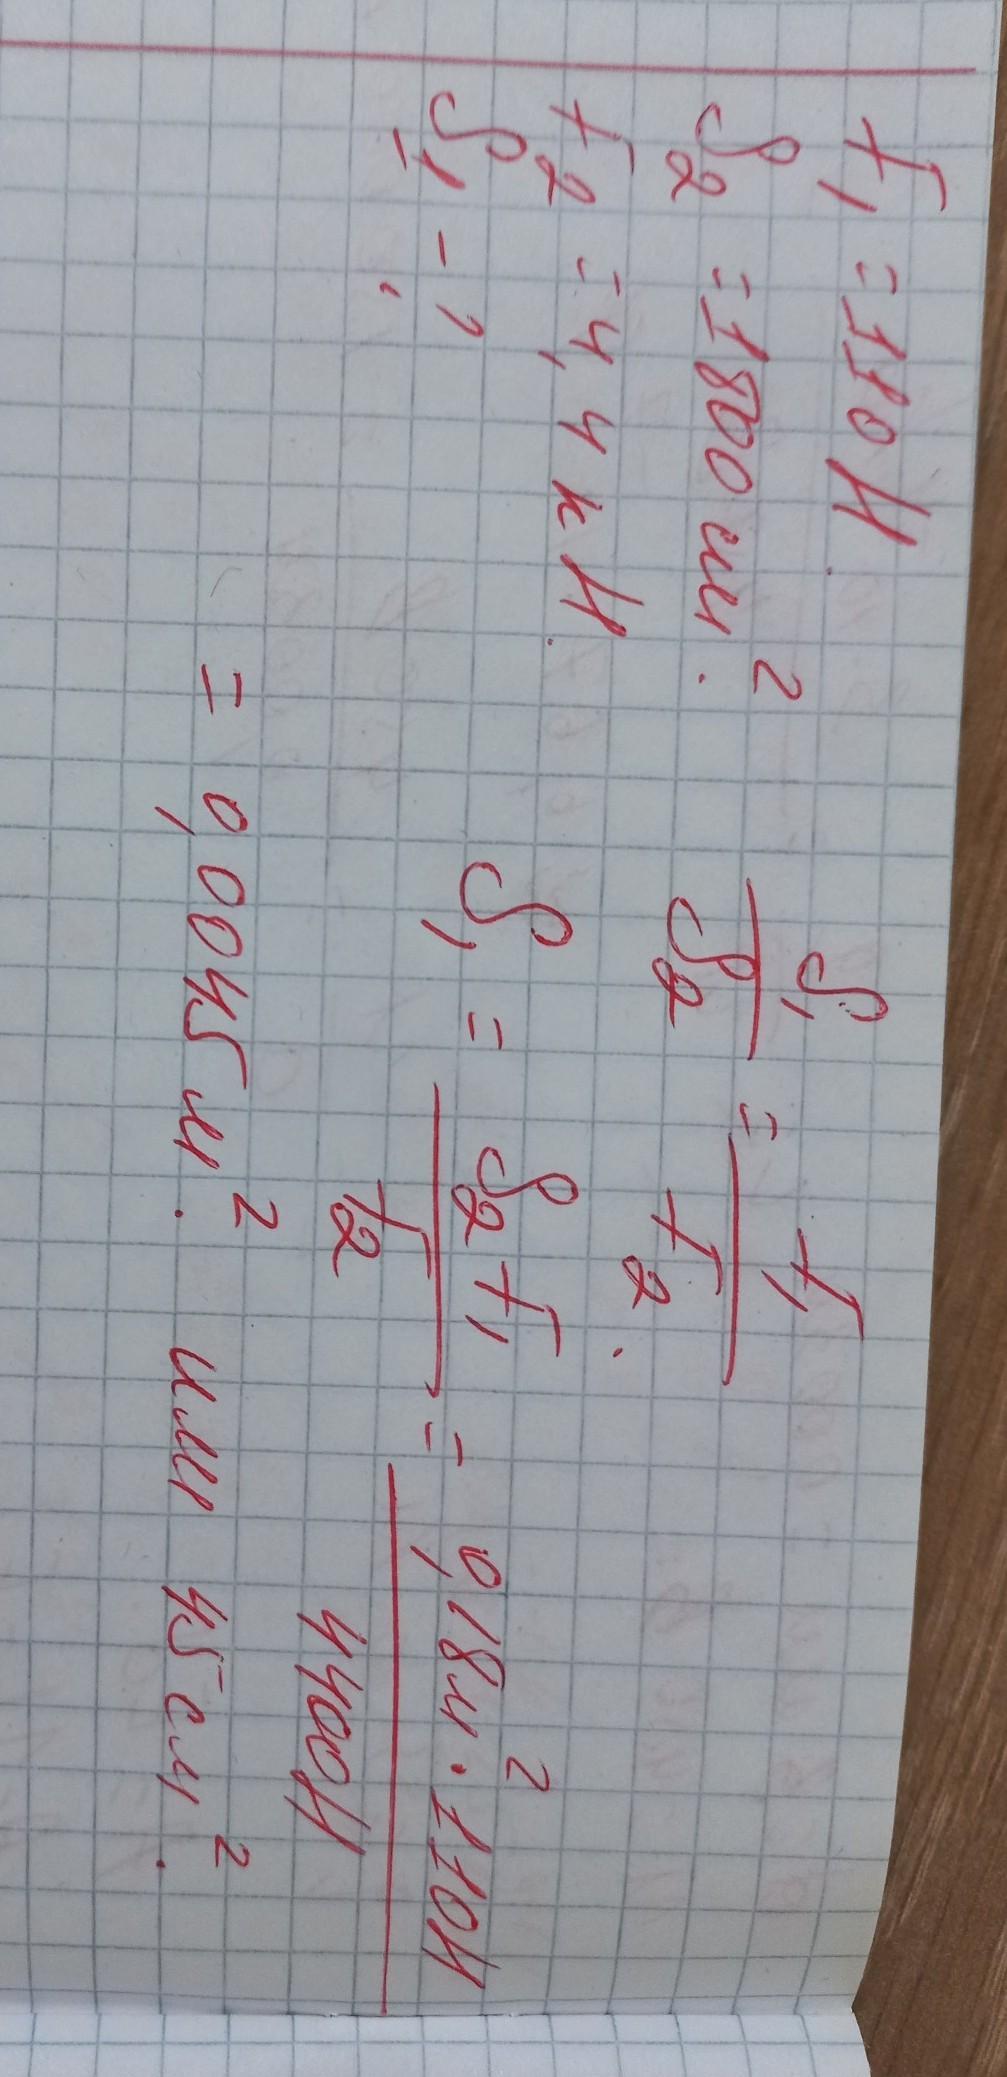 F₁ = 110 Н.
S₂ = 1800 см².
F₂ = 4,4 кН.
S₁ - ?
S₁/S₂ = F₁/F₂.
S₁ = S₂F₁/F₂ = 0,18м²·110Н/4400Н
= 0,0045м². или 45см².